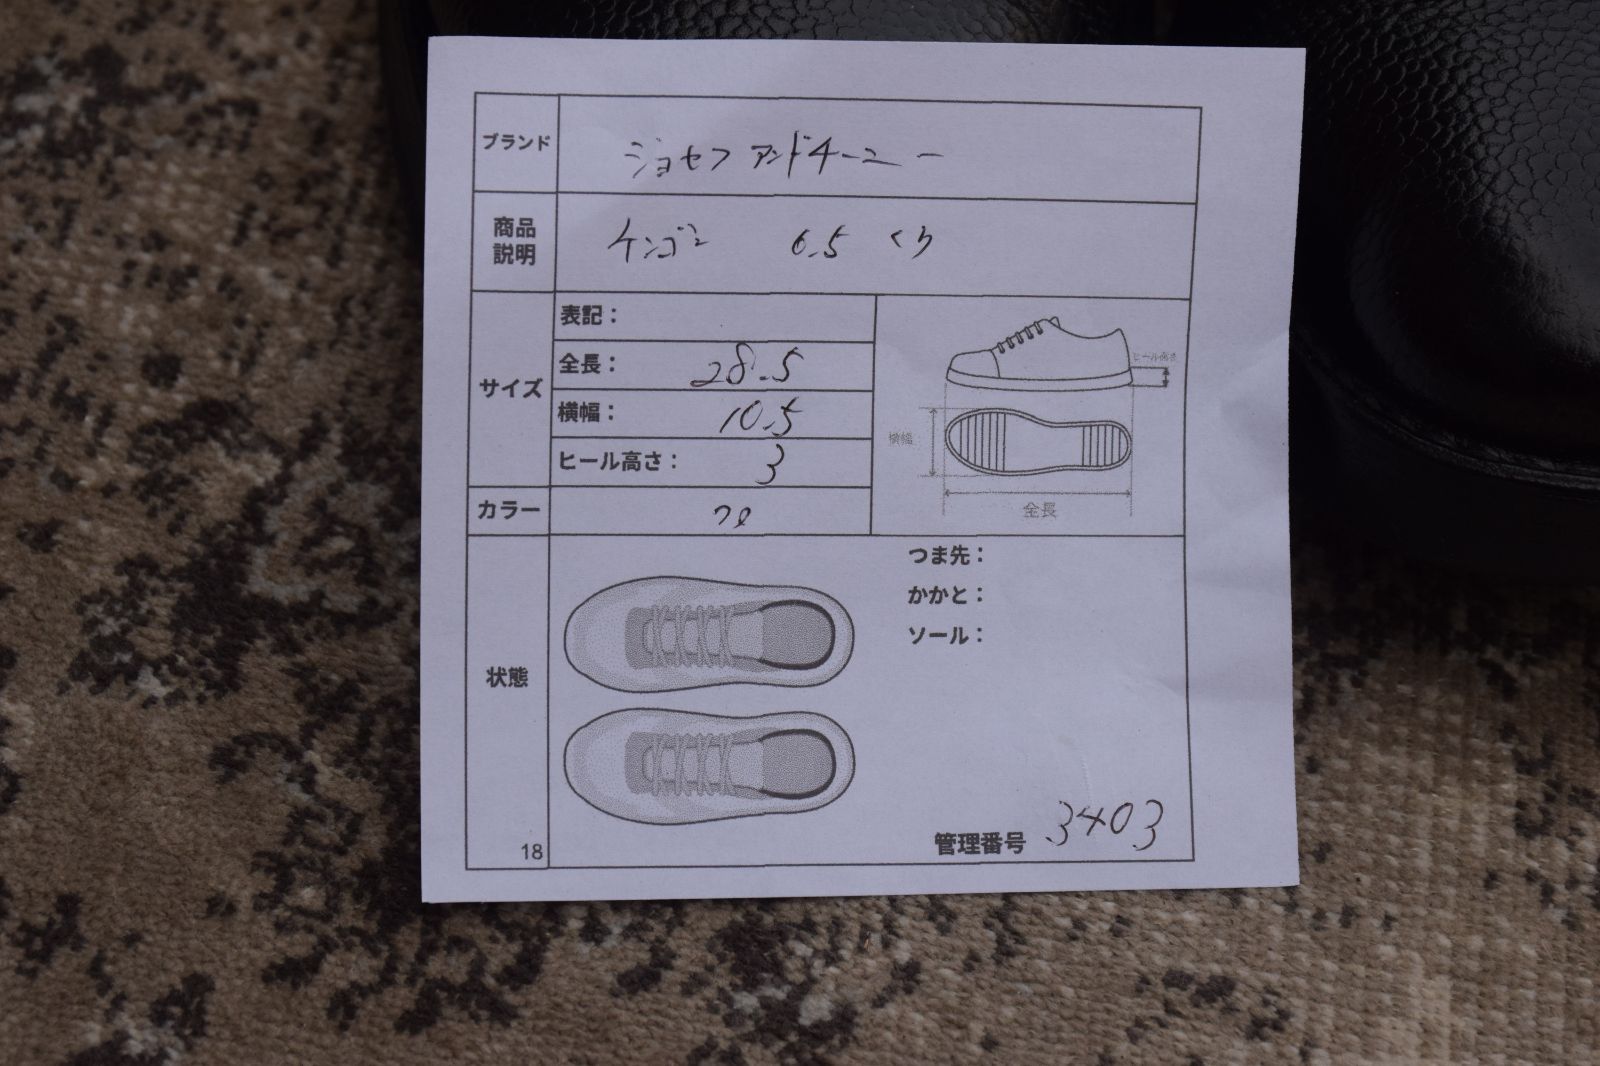 ブランド ジョセフ アンドチーニー
商品説明 ケンゴン 6.5 くり
サイズ
表記：
全長： 28.5
横幅： 10.5
ヒール高さ： 3
カラー クロ
ヒール高さ
横幅
全長
状態
つま先：
かかと：
ソール：
18
管理番号 3403